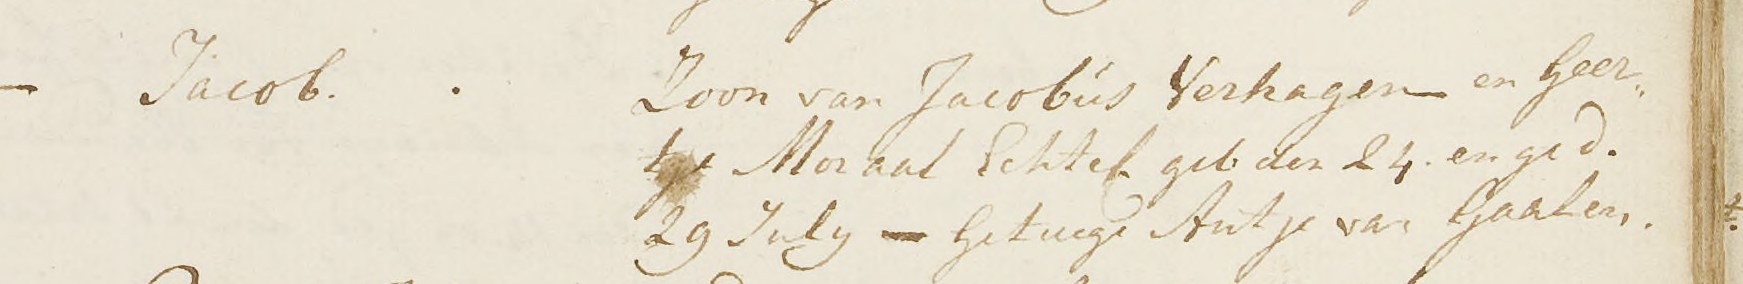 — Jacob. . Zoon van Jacobüs Verhagen — en Geer„
tje Moraal Echtel geb den 24. en ged.
29 July — Getuige Antje van Gaalen.